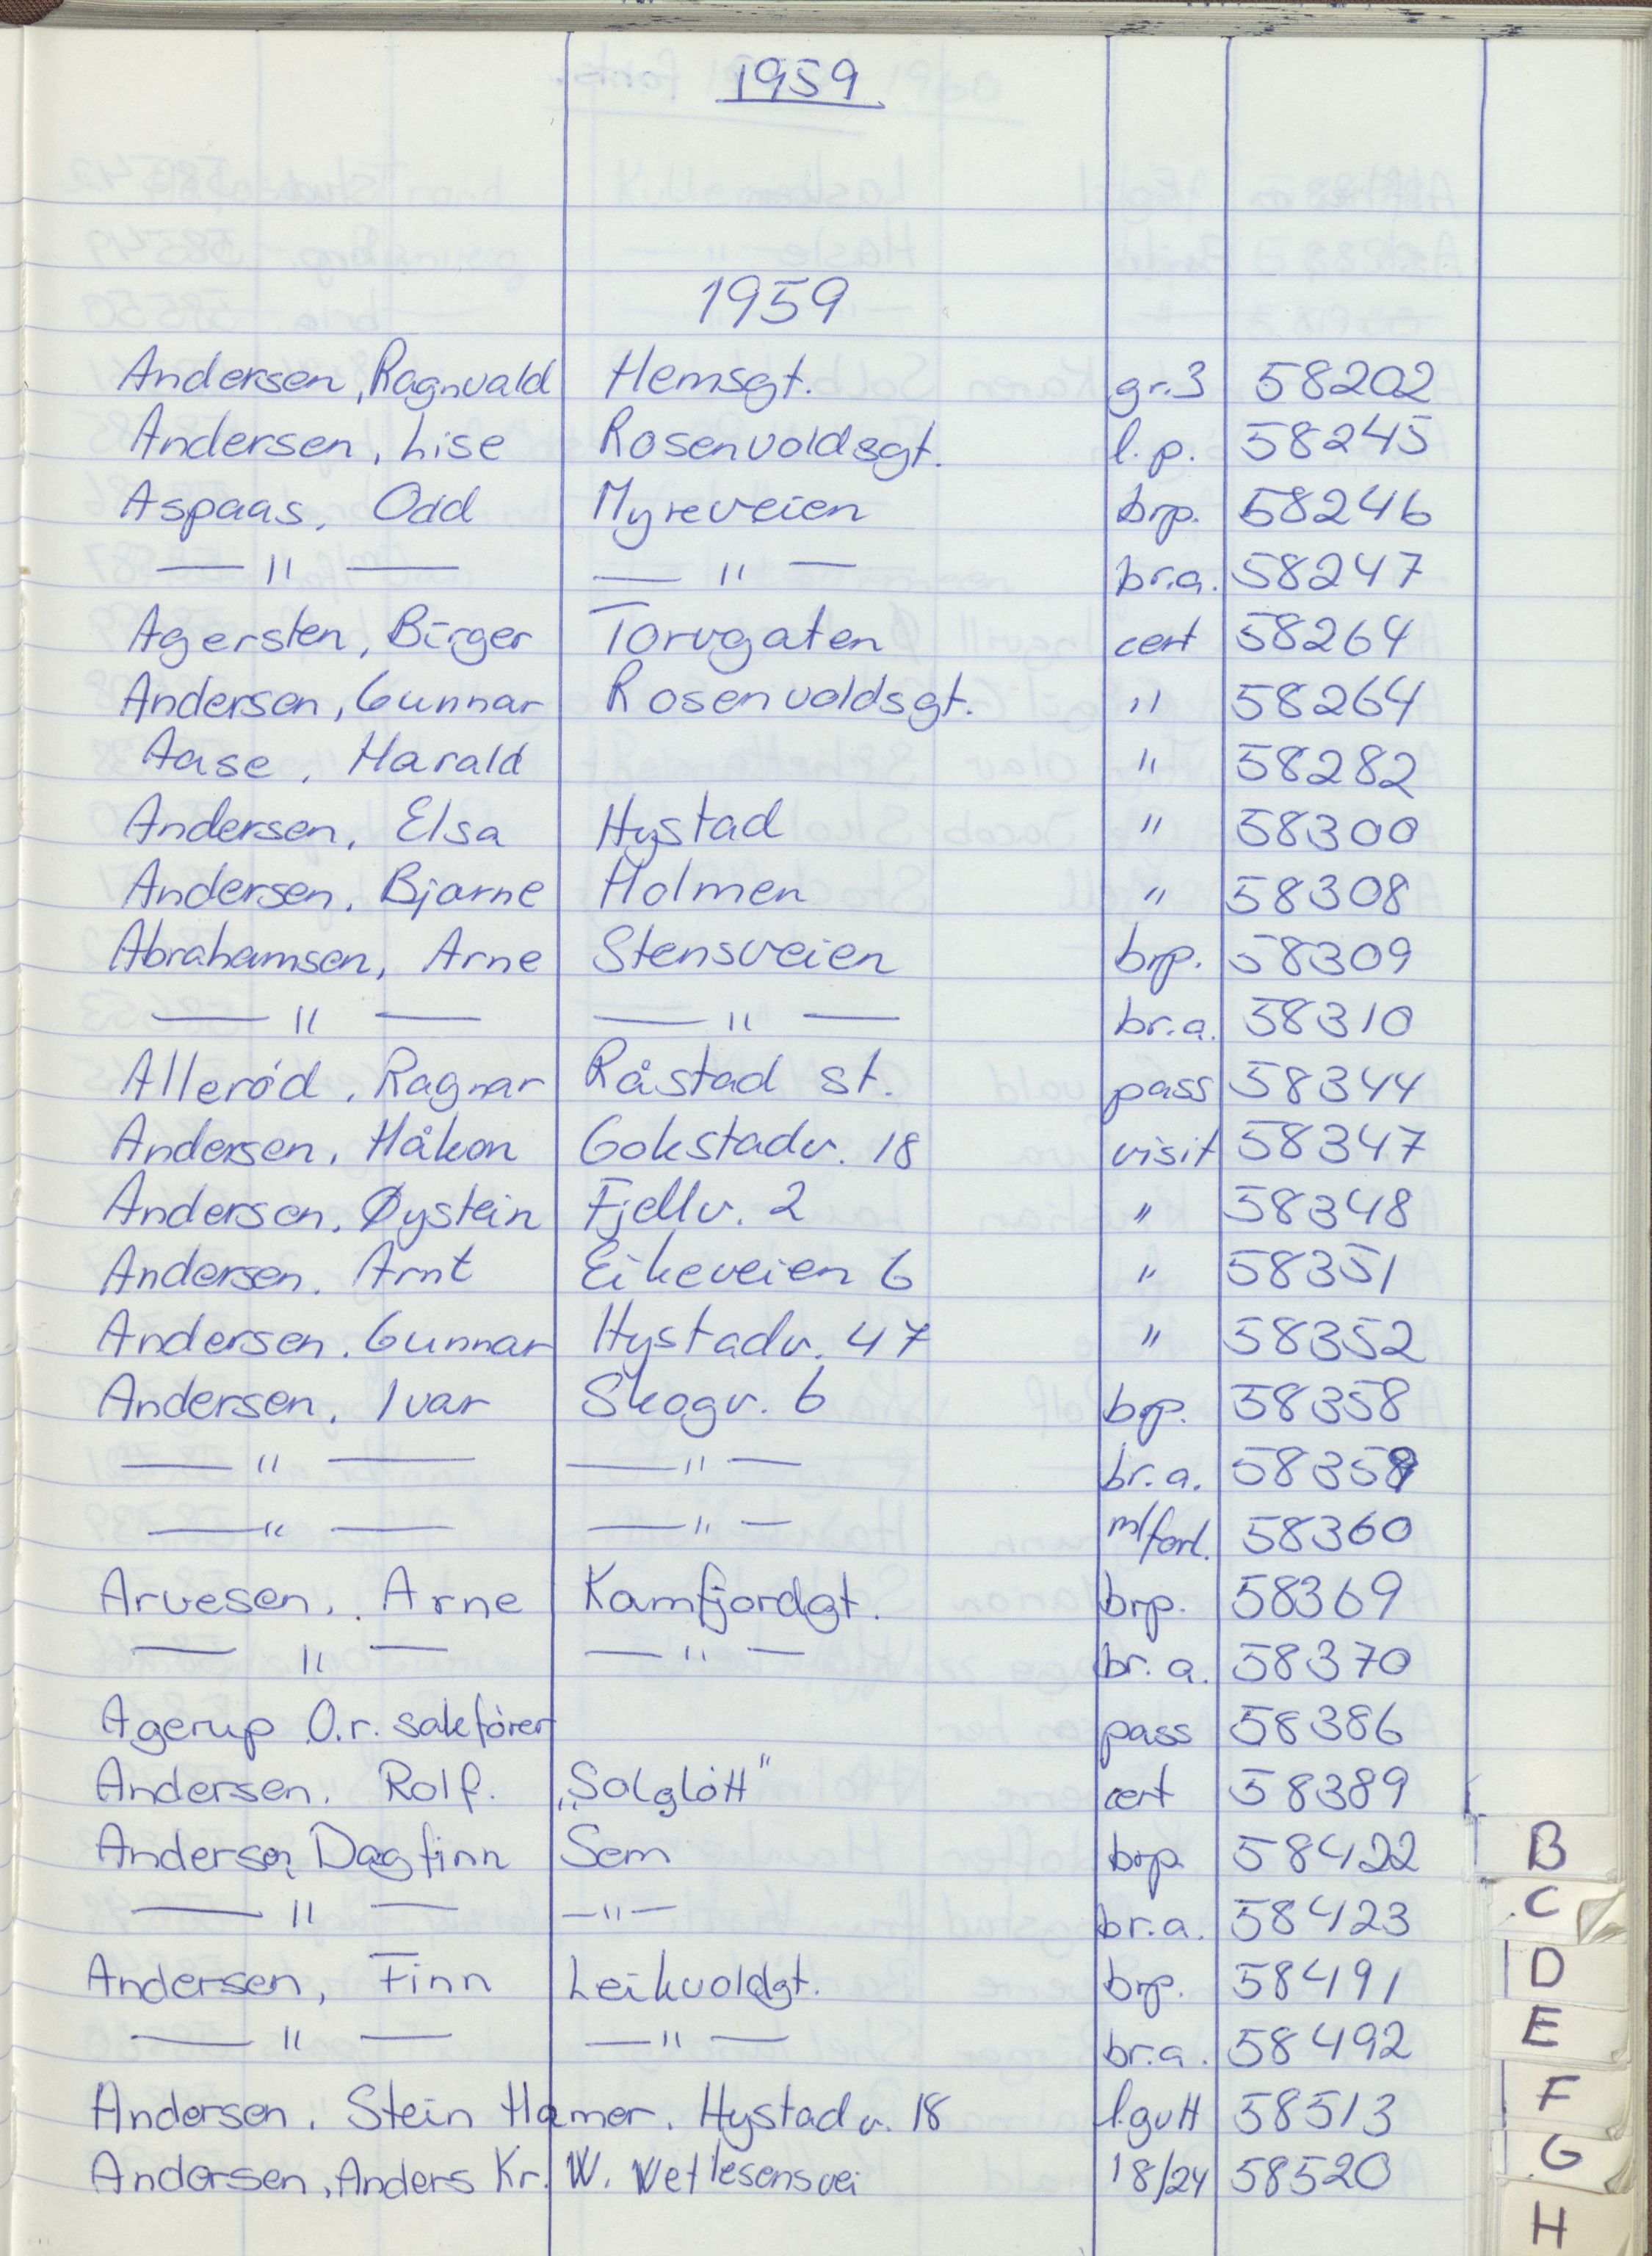 1959
1959
Andersen, Ragnvald Hemsgt. gr.3 58202
Andersen, Lise Rosenvoldsgt. l.p. 58245
Aspaas, Odd Myreveien brp. 58246
— " — — " — br.a. 58247
Agersten, Birger Torvgaten cert 58264
Andersen, Gunnar Rosenvoldsgt. " 58264
Aase, Harald " 58282
Andersen, Elsa Hystad " 58300
Andersen, Bjarne Holmen " 58308
Abrahamsen, Arne Stensveien brp. 58309
— " — — " — br.a. 58310
Allerød, Ragnar Råstad st. pass 58344
Andersen, Håkon Gokstadv. 18 visit 58347
Andersen, Øystein Fjellv. 2 " 58348
Andersen, Arnt Eikeveien 6 " 58351
Andersen, Gunnar Hystadv. 47 " 58352
Andersen, Ivar Skogv. 6 brp. 58358
— " — — " — br.a. 58359
— " — — " — m/forl. 58360
Arvesen, Arne Kamfjordgt. brp. 58369
— " — — " — br.a. 58370
Agerup O.r. sakfører pass 58386
Andersen, Rolf. „Solgløtt" cert 58389
Andersen, Dagfinn Sem brp. 58422
— " — — " — br.a. 58423
Andersen, Finn Leikvoldgt. brp. 58491
— " — — " — br.a. 58492
Andersen, Stein Hamer. Hystadv. 18 l.gutt 58513
Andersen, Anders Kr. W. Wetlesensvei 18/24 58520
B
C
D
E
F
G
H